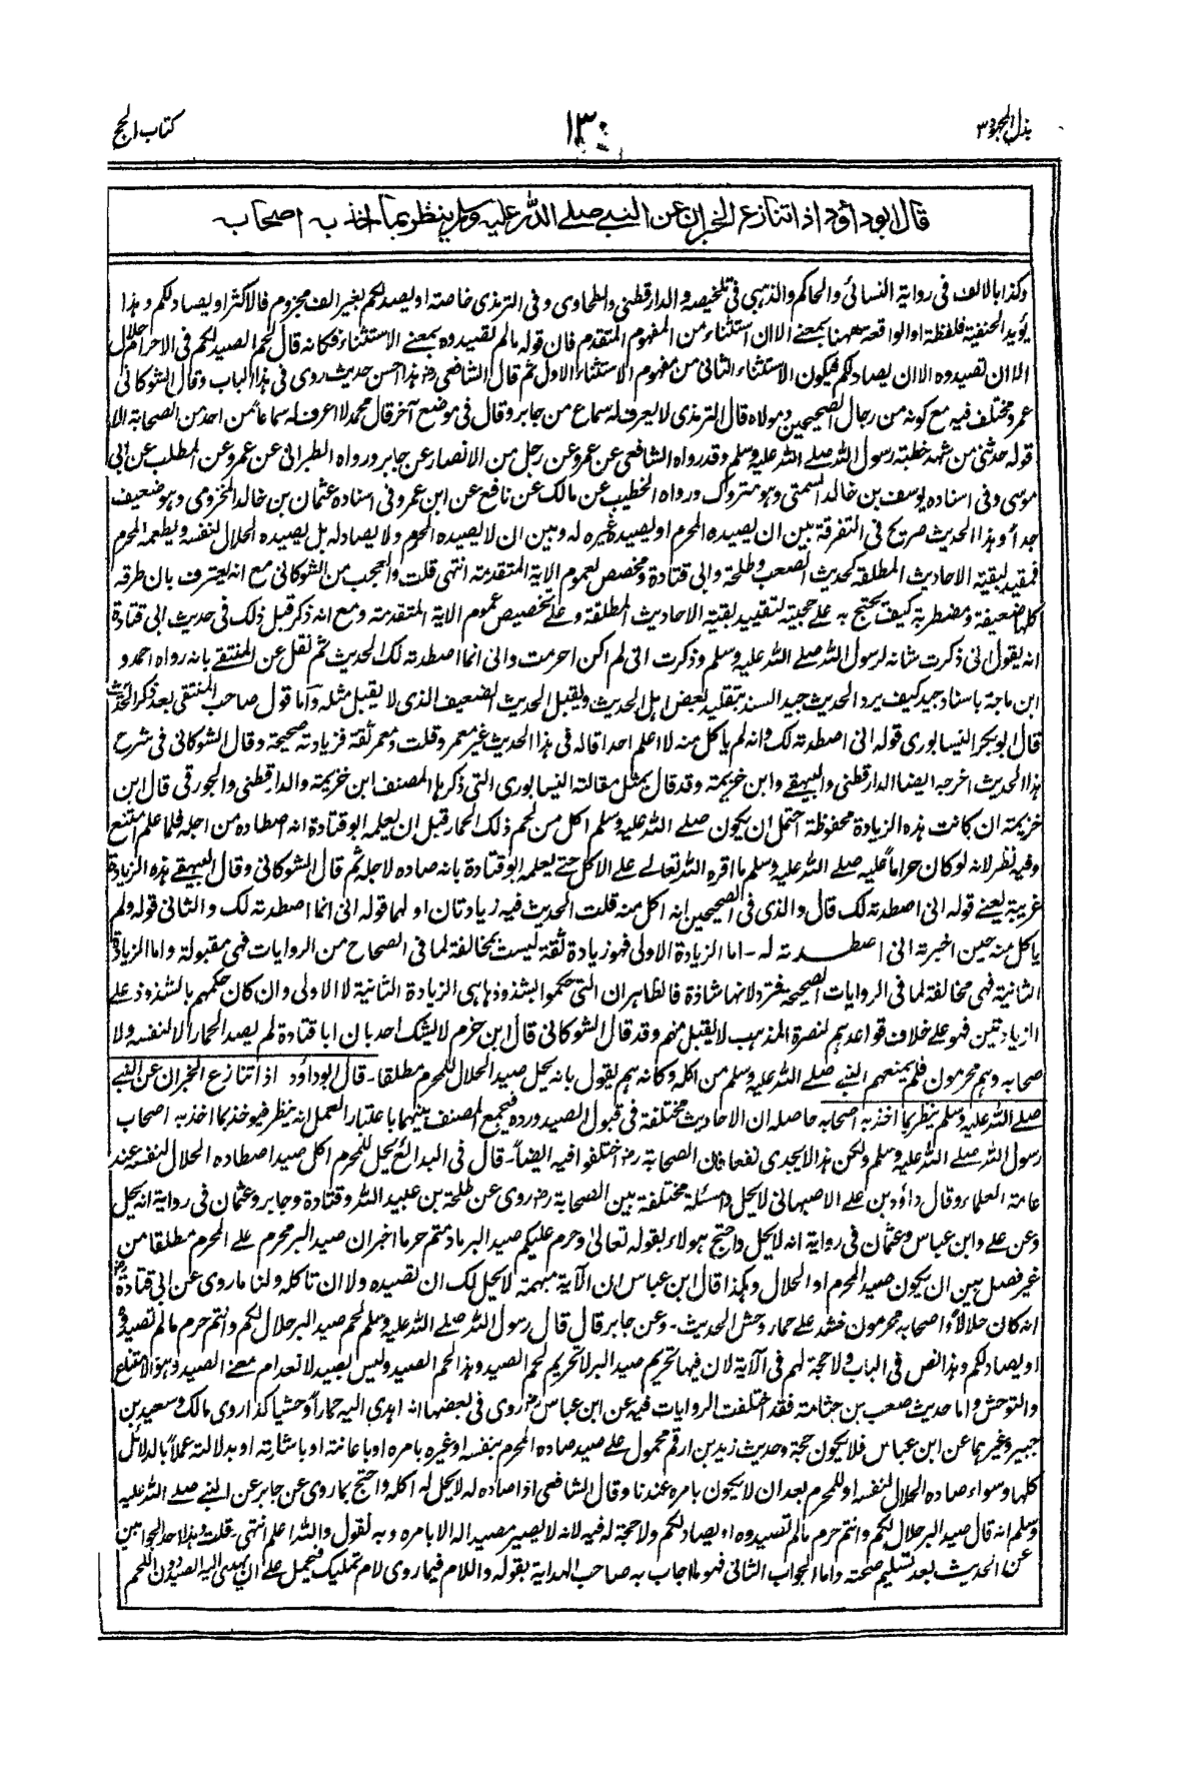 بذل المجهود ٣
١٣٠
كتاب الحج
قال ابو داؤد اذا تنازع الخبران عن النبي صلے الله عليه وسلم ينظر بما اخذ به اصحابه
وكذا بالالف في رواية النسائي والحاكم والذهبي في تلخيصه والدارقطني والطحاوي وفي الترمذي خاصة او يصد لكم بغير الف مجزوم فالاكثر او يصاد لكم وهذا
يؤيد الحنفية فلفظة او الواقعة ههنا بمعنے الا ان استثناء من المفهوم المتقدم فان قوله مالم تصيدوه بمعنے الاستثناء فكانه قال لحم الصيد لكم في الاحرام حلال
الا ان تصيدوه الا ان يصاد لكم فيكون الاستثناء الثاني من مفهوم الاستثناء الاول ثم قال الشافعي رض هذا احسن حديث روى في هذا الباب وقال الشوكاني
عمرو مختلف فيه مع كونه من رجال الصحيحين ومولاه قال الترمذي لا يعرف له سماع من جابر وقال في موضع آخر قال محمد لا اعرف له سماعا من احد من الصحابة الا
قوله حدثني من شهد خطبة رسول الله صلے الله عليه وسلم وقد رواه الشافعي عن عمرو عن رجل من الانصار عن جابر ورواه الطبراني عن عمرو عن المطلب عن ابي
موسى وفي اسناده يوسف بن خالد السمتي وهو متروك ورواه الخطيب عن مالك عن نافع عن ابن عمر وفي اسناده عثمان بن خالد المخزومي وهو ضعيف
جدا وهذا الحديث صريح في التفرقة بين ان يصيده المحرم او يصيده غيره له وبين ان لا يصيده المحرم ولا يصاد له بل يصيده الحلال لنفسه ويطعمه المحرم
فمقيد لبقية الاحاديث المطلقة كحديث الصعب وطلحة وابي قتادة ومخصص لعموم الاية المتقدمة انتهى قلت والعجب من الشوكاني مع انه يعترف بان طرقه
كلها ضعيفة ومضطربة كيف يحتج به علے حجية لتقييد لبقية الاحاديث المطلقة وعلے تخصيص عموم الاية المتقدمة ومع انه ذكر قبل ذلك في حديث ابي قتادة
انه يقول اني ذكرت شانه لرسول الله صلے الله عليه وسلم وذكرت اني لم اكن احرمت واني انما اصطدته لك الحديث ثم نقل عن المنتقے بانه رواه احمد و
ابن ماجة باسناد جيد كيف يرد الحديث جيد السند بتقليد لبعض اهل الحديث ويقبل الحديث الضعيف الذي لا يقبل مثله واما قول صاحب المنتقى بعد ذكر الحديث
قال ابو بكر النيسابوري قوله اني اصطدته لك وانه لم ياكل منه لا اعلم احدا قاله في هذا الحديث غير معمر وقلت ومعمر ثقة فزيادته صحيحة وقال الشوكاني في شرح
هذا الحديث اخرجه ايضا الدارقطني والبيهقے وابن خزيمة وقد قال بمثل مقالة النيسابوري التي ذكرها المصنف ابن خزيمة والدارقطني والجورقي قال ابن
خزيمة ان كانت هذه الزيادة محفوظة احتمل ان يكون صلے الله عليه وسلم اكل من لحم ذلك الحمار قبل ان يعلمه ابو قتادة انه اصطاده من اجله فلما علم امتنع
وفيه نظر لانه لو كان حراماً عليه صلے الله عليه وسلم ما اقره الله تعالے علے الاكل حتے يعلمه ابو قتادة بانه صاده لاجله ثم قال الشوكاني وقال البيهقے هذه الزيادة
غريبة يعنے قوله اني اصطدته لك قال والذي في الصحيحين انه اكل منه قلت الحديث فيه زيادتان اولهما قوله اني انما اصطدته لك والثاني قوله ولم
ياكل منه حين اخبرته اني اصطدته له - اما الزيادة الاولى فهو زيادة ثقة ليست بمخالفة لما في الصحاح من الروايات فهي مقبولة واما الزيادة
الثانية فهي مخالفة لما في الروايات الصحيحة فترد لانها شاذة فالظاهر ان التي حكموا بشذوذها هي الزيادة الثانية لا الاولى وان كان حكمهم بالشذوذ علے
الزيادتين فهو علے خلاف قواعدهم لنصرة المذهب لا يقبل منهم وقد قال الشوكاني قال ابن حزم لا يشك احد بان ابا قتادة لم يصد الحمار الا لنفسه ولا
صحابه وهم محرمون فلم يمنعهم النبے صلے الله عليه وسلم من اكله وكانه هم يقول بانه يحل صيد الحلال للمحرم مطلقا - قال ابو داؤد اذا تنازع الخبران عن النبے
صلے الله عليه وسلم ينظر بما اخذ به اصحابه حاصله ان الاحاديث مختلفة في قبول الصيد ورده فجمع المصنف بينهما باعتبار العمل انه ينظر فيوخذ كما اخذ به اصحاب
رسول الله صلے الله عليه وسلم ولكن هذا لا يجدي نفعا فان الصحابة رض اختلفوا فيه ايضاً - قال في البدائع يحل للمحرم اكل صيد اصطاده الحلال لنفسه عند
عامة العلماء وقال داؤد بن علے الاصبهاني لا يحل والمسئلة مختلفة بين الصحابة رض روى عن طلحة بن عبيد الله وقتادة وجابر وعثمان في رواية انه يحل
وعن علے وابن عباس وعثمان في رواية انه لا يحل واحتج هولاء بقوله تعالى وحرم عليكم صيد البر مادمتم حرما اخبر ان صيد البر محرم علے المحرم مطلقا من
غير فصل بين ان يكون صيد المحرم او الحلال وهكذا قال ابن عباس ان الآية مبهمة لا يحل لك ان تصيده ولا ان تاكله ولنا ما روى عن ابي قتادة رض
انه كان حلالاً واصحابه محرمون فشد علے حمار وحش الحديث - وعن جابر قال قال رسول الله صلے الله عليه وسلم لحم صيد البر حلال لكم وانتم حرم مالم تصيدوه
او يصاد لكم وهذا النص في الباب ولا حجة لهم في الآية لان فيها تحريم صيد البر لا تحريم لحم الصيد وهذا لحم الصيد وليس بصيد لانعدام معنے الصيد وهو الامتناع
والتوحش واما حديث صعب بن جثامة فقد اختلفت الروايات فيه عن ابن عباس رض روى في بعضها انه اهدى اليه حماراً وحشيا كذا روى مالك وسعيد بن
جبير وغيرهما عن ابن عباس فلا يكون حجة وحديث زيد بن ارقم محمول علے صيد صاده المحرم بنفسه او غيره بامره او باعانته او باشارته او بدلالته عملاً بالدلائل
كلها وسواء صاده الحلال لنفسه او للمحرم بعد ان لا يكون بامره عندنا وقال الشافعي اذا صاده له لا يحل له اكله واحتج بما روى عن جابر عن النبے صلے الله عليه
وسلم انه قال صيد البر حلال لكم وانتم حرم مالم تصيدوه او يصاد لكم ولا حجة له فيه لانه لا يصير مصيدا له الا بامره وبه نقول والله اعلم انتهى - قلت هذا احد الجوابين
عن الحديث بعد تسليم صحته واما الجواب الثاني فهو ما اجاب به صاحب الهداية بقوله واللام فيما روى لام تمليك فيحمل علے ان يهدى اليه الصيد دون اللحم